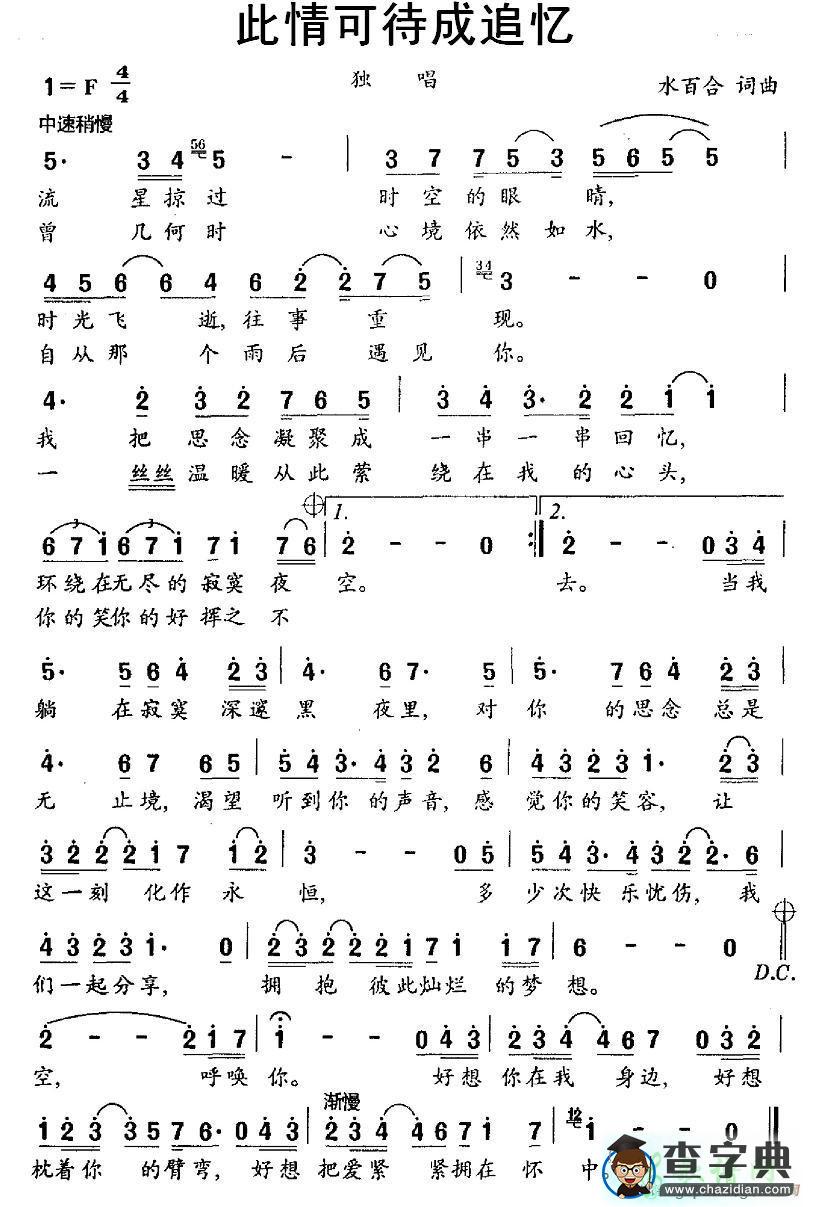 此情可待成追忆
1=F 4/4 独 唱 水百合 词曲
中速稍慢
5· 3 4 56 5 - | 3 7 7 5 3 5 6 5 5
流 星掠过 时空的眼 睛,
曾 几何时 心境依然如水,
4 5 6 6 4 6 2 2 7 5 | 34 3 - - 0
时光飞 逝,往事 重 现。
自从那 个雨后 遇见 你。
4· 2 3 2 7 6 5 | 3 4 3· 2 2 1 1
我 把思念凝聚成 一串一串回忆,
一 丝丝温暖从此萦 绕在我 的心头,
3 3 1. 2.
6 7 1 6 7 1 7 1 7 6 | 2 - - 0 :| 2 - - 0 3 4
环绕在无尽的寂寞夜 空。 去。 当我
你的笑你的好挥之 不
5· 5 6 4 2 3 | 4· 6 7· 5 | 5· 7 6 4 2 3
躺 在寂寞 深邃 黑 夜里, 对 你 的思念 总是
4· 6 7 6 5 | 5 4 3· 4 3 2 6 | 4 3 2 3 1· 2 3
无 止境, 渴望 听到你 的声音,感 觉你的笑容, 让
3 2 2 2 1 7 1 2 | 3 - - 0 5 | 5 4 3· 4 3 2 2· 6
这一刻 化作 永 恒, 多 少次快 乐忧伤, 我
4 3 2 3 1· 0 | 2 3 2 2 2 1 7 1 1 7 | 6 - - 0
D.C.
们一起分享, 拥 抱 彼此灿烂 的梦 想。
2 - - 2 1 7 | 1 - - 0 4 3 | 2 3 4 4 6 7 0 3 2
空, 呼唤 你。 好想 你在我 身边, 好想
渐慢
1 2 3 3 5 7 6· 0 4 3 | 2 3 4 4 6 7 1 7 | 12 1 - - -
枕着你 的臂弯, 好想 把爱紧 紧拥在 怀 中
查字典
www.chazidian.com